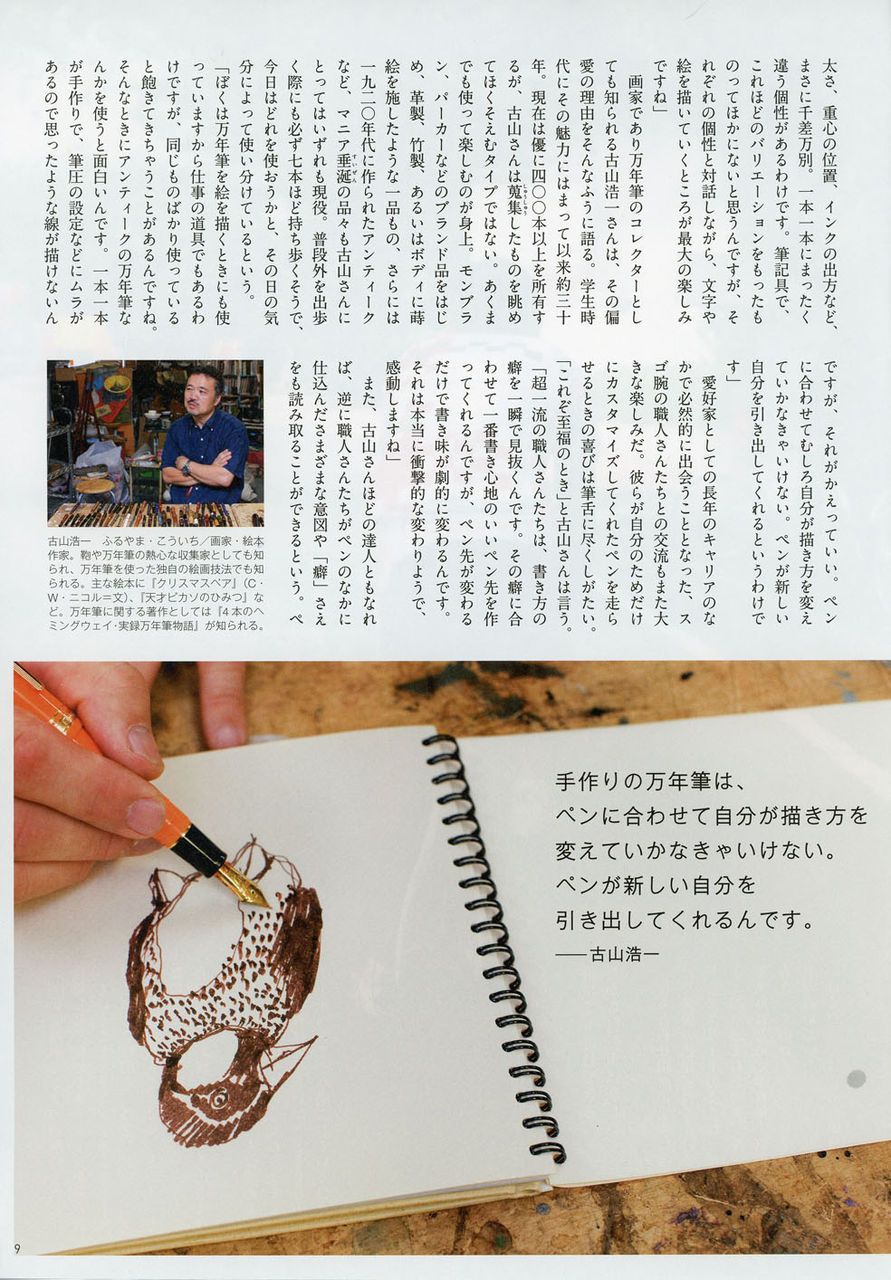 太さ、重心の位置、インクの出方など、
まさに千差万別。一本一本にまったく
違う個性があるわけです。筆記具で、
これほどのバリエーションをもったも
のってほかにないと思うんですが、そ
れぞれの個性と対話しながら、文字や
絵を描いていくところが最大の楽しみ
ですね」
画家であり万年筆のコレクターとし
ても知られる古山浩一さんは、その偏
愛の理由をそんなふうに語る。学生時
代にその魅力にはまって以来約三十
年。現在は優に四〇〇本以上を所有す
るが、古山さんは蒐集したものを眺め
しゅうしゅう
てほくそえむタイプではない。あくま
でも使って楽しむのが身上。モンブラ
ン、パーカーなどのブランド品をはじ
め、革製、竹製、あるいはボディに蒔
絵を施したような一品もの、さらには
一九二〇年代に作られたアンティーク
など、マニア垂涎の品々も古山さんに
すいぜん
とってはいずれも現役。普段外を出歩
く際にも必ず七本ほど持ち歩くそうで、
今日はどれを使おうかと、その日の気
分によって使い分けているという。
「ぼくは万年筆を絵を描くときにも使
っていますから仕事の道具でもあるわ
けですが、同じものばかり使っている
と飽きてきちゃうことがあるんですね。
そんなときにアンティークの万年筆な
んかを使うと面白いんです。一本一本
が手作りで、筆圧の設定などにムラが
あるので思ったような線が描けないん
ですが、それがかえっていい。ペン
に合わせてむしろ自分が描き方を変え
ていかなきゃいけない。ペンが新しい
自分を引き出してくれるというわけで
す」
愛好家としての長年のキャリアのな
かで必然的に出会うこととなった、ス
ゴ腕の職人さんたちとの交流もまた大
きな楽しみだ。彼らが自分のためだけ
にカスタマイズしてくれたペンを走ら
せるときの喜びは筆舌に尽くしがたい。
「これぞ至福のとき」と古山さんは言う。
「超一流の職人さんたちは、書き方の
癖を一瞬で見抜くんです。その癖に合
わせて一番書き心地のいいペン先を作
ってくれるんですが、ペン先が変わる
だけで書き味が劇的に変わるんです。
それは本当に衝撃的な変わりようで、
感動しますね」
また、古山さんほどの達人ともなれ
ば、逆に職人さんたちがペンのなかに
仕込んださまざまな意図や「癖」さえ
をも読み取ることができるという。ペ
古山浩一 ふるやま・こういち/画家・絵本
作家。鞄や万年筆の熱心な収集家としても知
られ、万年筆を使った独自の絵画技法でも知
られる。主な絵本に『クリスマスベア』(C・
W・ニコル=文)、『天才ピカソのひみつ』な
ど。万年筆に関する著作としては『4本のヘ
ミングウェイ・実録万年筆物語』が知られる。
手作りの万年筆は、
ペンに合わせて自分が描き方を
変えていかなきゃいけない。
ペンが新しい自分を
引き出してくれるんです。
——古山浩一
9